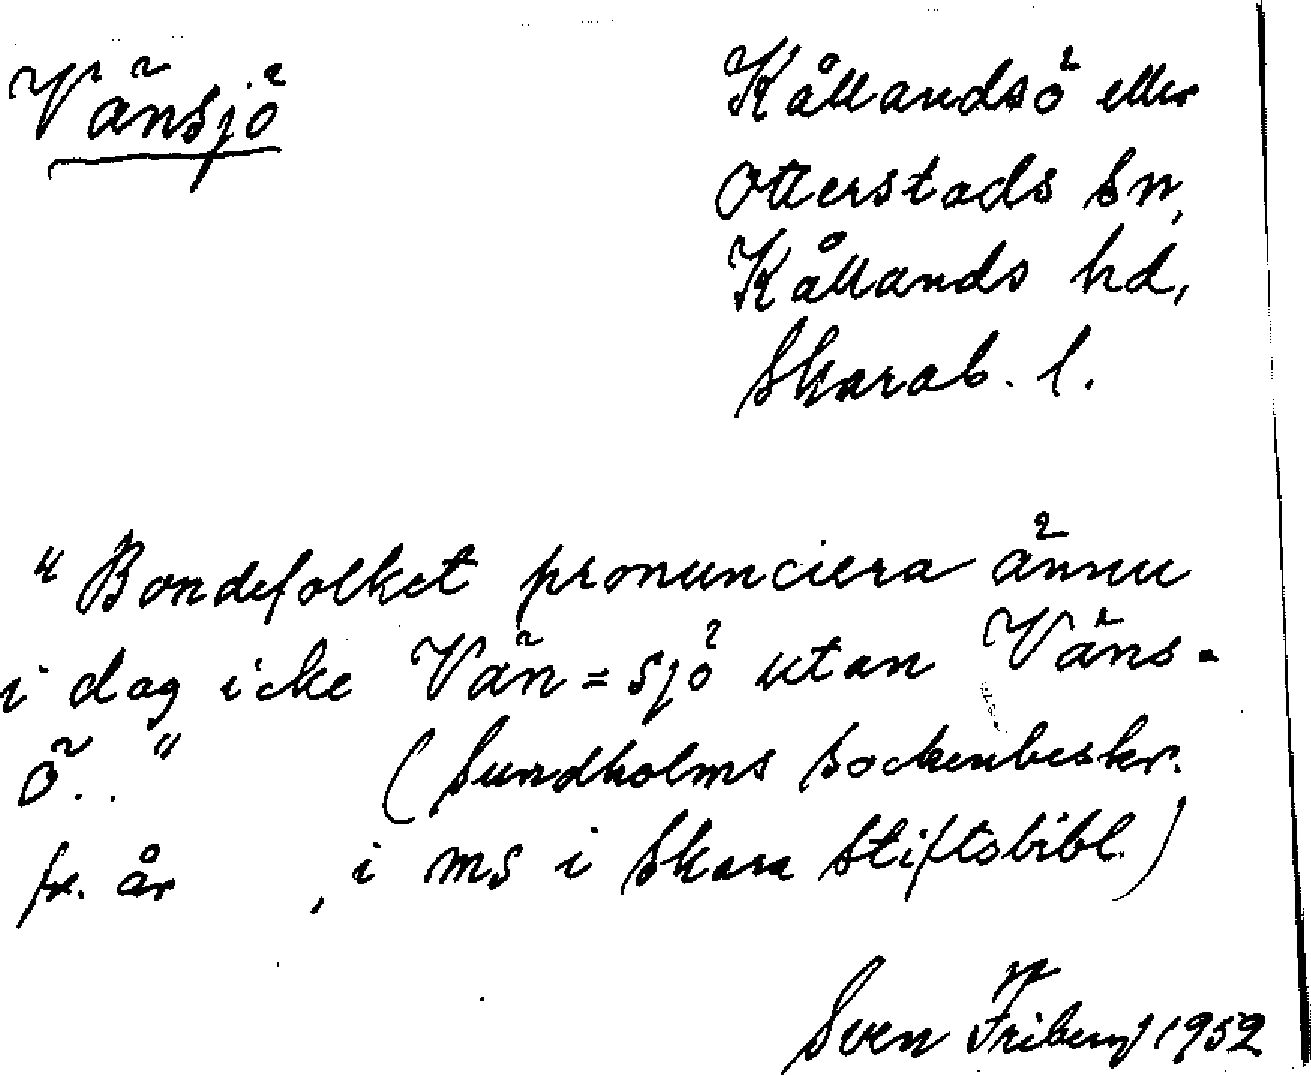 Vänsjö
Kållandsö eller
Otterstads sn,
Kållands hd,
Skarab. l.
"Bondefolket pronunciera ännu
i dag icke Vän=sjö utan Väns-
ö.." (Sundholms sockenbeskr.
fr. år , i ms i Skara Stiftsbibl.)
Sven Friberg 1952